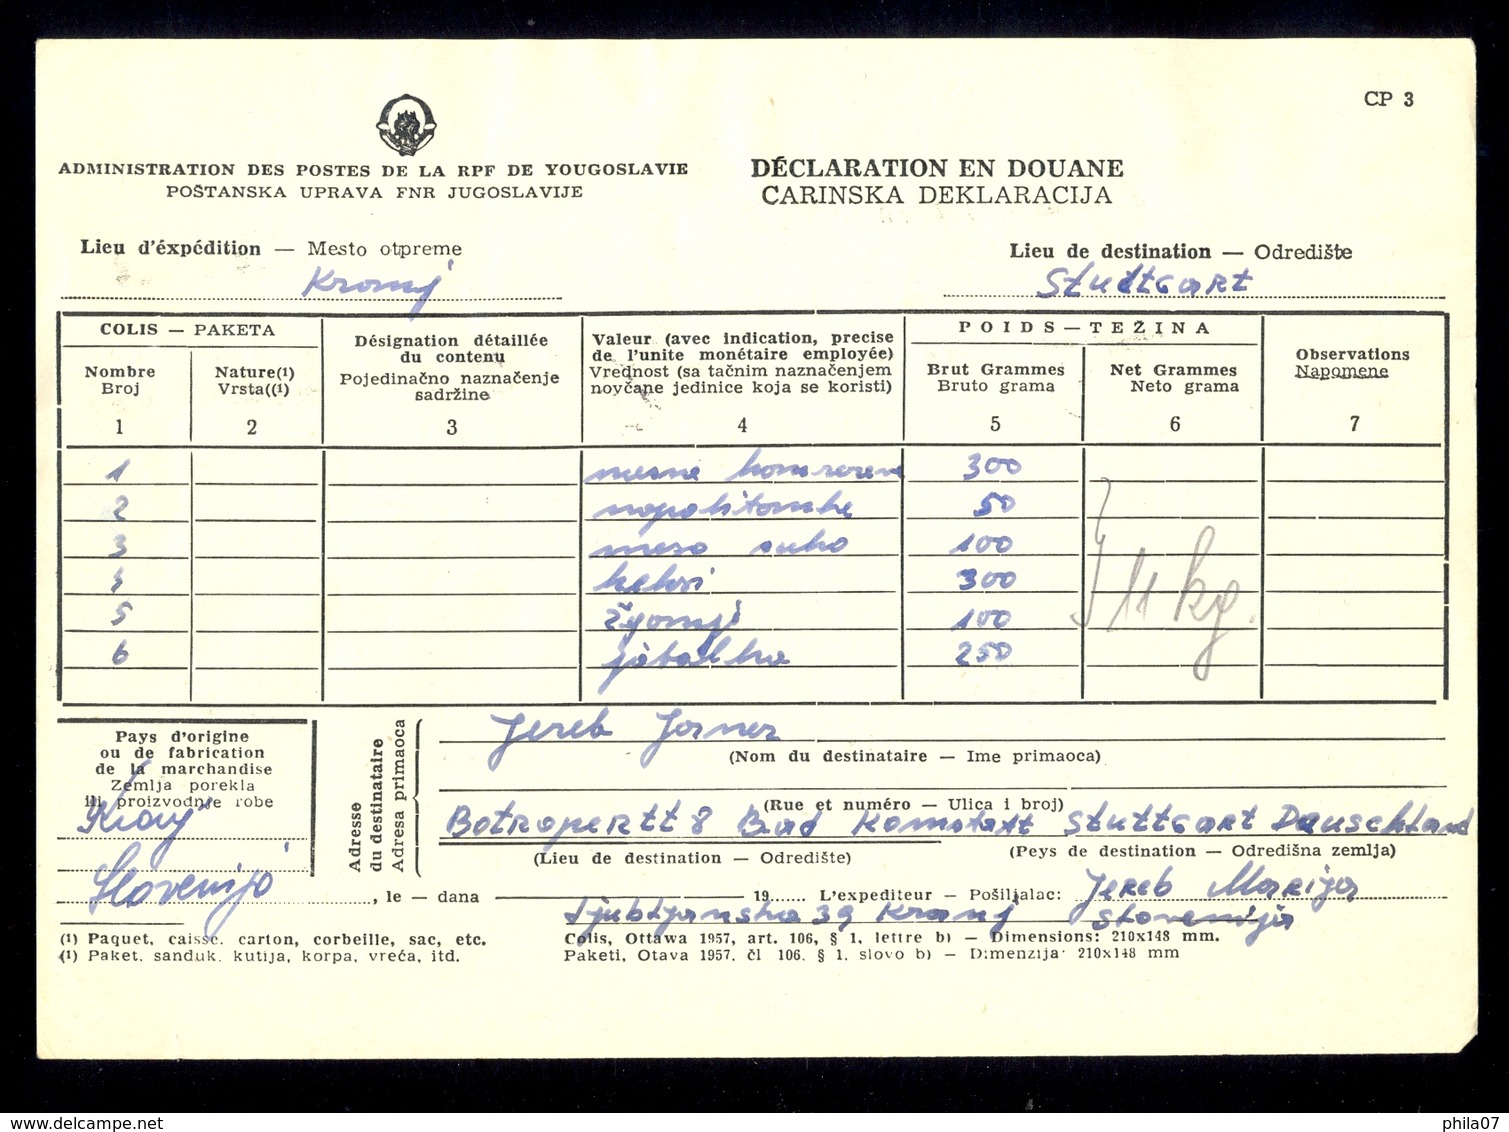 CP 3
ADMINISTRATION DES POSTES DE LA RPF DE YOUGOSLAVIE
POŠTANSKA UPRAVA FNR JUGOSLAVIJE
DÉCLARATION EN DOUANE
CARINSKA DEKLARACIJA
Lieu d'éxpédition — Mesto otpreme
Kranj
Lieu de destination — Odredište
Stuttgart
COLIS — PAKETA
Nombre
Broj
1
Nature(1)
Vrsta((1)
2
Désignation détaillée
du contenu
Pojedinačno naznačenje
sadržine
3
Valeur (avec indication, precise
de l'unite monétaire employée)
Vrednost (sa tačnim naznačenjem
novčane jedinice koja se koristi)
4
POIDS — TEŽINA
Brut Grammes
Bruto grama
5
Net Grammes
Neto grama
6
Observations
Napomene
7
1 mesne 300
2 napolitanke 50
3 meso suho 100
4 keksi 300
5 žganji 100
6 jabolka 250
11 kg.
Pays d'origine
ou de fabrication
de la marchandise
Zemlja porekla
ili proizvodnje robe
Kranj
Slovenija
Adresse
du destinataire
Adresa primaoca
Jereb
(Nom du destinataire — Ime primaoca)
(Rue et numéro — Ulica i broj)
8 Bad Kanstatt Stuttgart Dauschland
(Lieu de destination — Odredište)
(Peys de destination — Odredišna zemlja)
, le — dana 19...... L'expediteur — Pošiljalac: Jereb Marija
Ljubljanska 39 Kranj Slovenija
(1) Paquet, caisse, carton, corbeille, sac, etc.
(1) Paket, sanduk, kutija, korpa, vreća, itd.
Colis, Ottawa 1957, art. 106, § 1, lettre b) — Dimensions: 210x148 mm.
Paketi, Otava 1957. čl 106. § 1. slovo b) — Dimenzija: 210x148 mm
www.delcampe.net
phila07